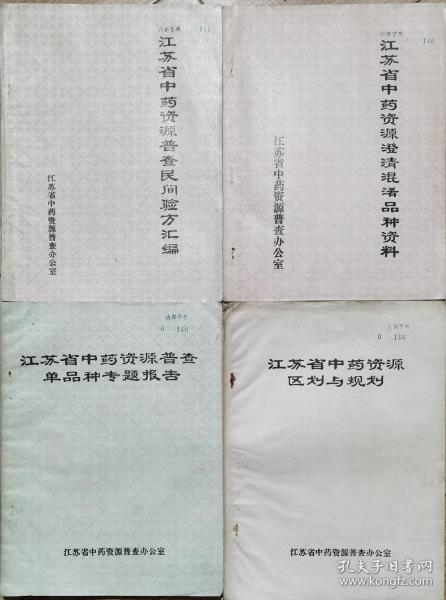 内部资料
146
江苏省中药资源普查民间验方汇编
江苏省中药资源普查办公室
内部资料
146
江苏省中药资源澄清混淆品种资料
江苏省中药资源普查办公室
内部资料
0 146
江苏省中药资源普查
单品种专题报告
江苏省中药资源普查办公室
内部资料
0 146
江苏省中药资源
区划与规划
江苏省中药资源普查办公室
孔夫子旧书网
www.kongfz.com